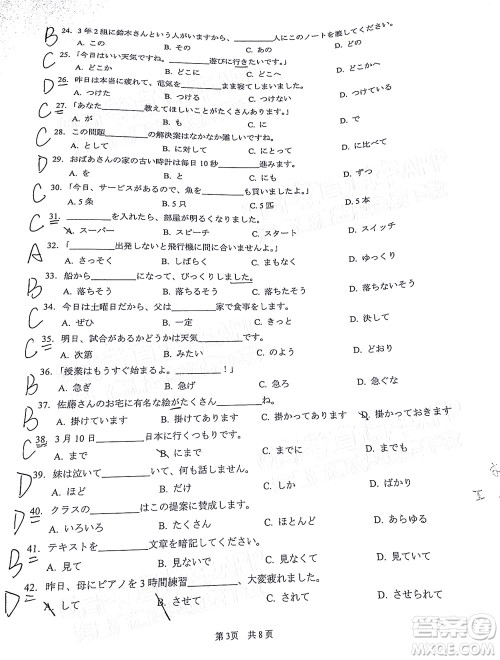 B 24. 3年2組に鈴木さんという人がいますから、________人にこのノートを渡してください。
A. この B. その C. あの D. どの
C 25.「今日はいい天気ですね。________遊びに行きたいです。」
A. どこか B. どこに C. どこへ D. どこで
B 26. 昨日は本当に疲れて、電気を________寝てしまいました。
A. つけた B. つけたまま C. つけない D. つけている
C 27.「あなた________教えてほしいことがたくさんあります。」
A. が B. を C. に D. で
B 28. この問題________の解決案はなかなか難しいですね。
A. として B. に対して C. にとって D. に比べて
D 29. おばあさんの家の古い時計は毎日10秒________遅れています。
A. ごと B. と C. とも D. ずつ
C 30.「今日、サービスがあるので、魚を________も買いましたよ。」
A. 5条 B. 5本 C. 5匹
D 31. ________を入れたら、部屋が明るくなりました。
A. スーパー B. スピーチ C. スタート D. スイッチ
A 32.「________出発しないと飛行機に間に合いませんよ。」
A. さっさと B. しばらく C. まもなく D. ゆっくり
B 33. 船から________になって、びっくりしました。
A. 落ちそう B. 落ちるそう C. 落ちたそう
C 34. 今日は土曜日だから、父は________家で食事をします。
A. ぜひ B. 一定 C. きっと D. 決して
C 35. 明日、試合があるかどうかは天気________です。
A. 次第 B. みたい C. ばかり D. どおり
B 36.「授業はもうすぐ始まるよ。________!」
A. 急ぎ B. 急げ C. 急ぐ D. 急ぐな
B 37. 佐藤さんのお宅に有名な絵が________ね。
A. 掛けています B. 掛けてあります C. 掛かってあります D. 掛かっておきます
C 38. 3月10日________日本に行くつもりです。
A. まで B. にまで C. までに D. までも
D 39. 妹は泣いて________いて、何も話しません。
A. ほど B. だけ C. しか D. ばかり
D 40. クラスの________はこの提案に賛成します。
A. いろいろ B. たくさん C. ほとんど D. あらゆる
B 41. テキストを________文章を暗記してください。
A. 見て B. 見ないで C. 見なくて D. 見ていて
D 42. 昨日、母にピアノを3時間練習________、大変疲れました。
A. して B. させて C. されて D. させられて
第3页 共8页